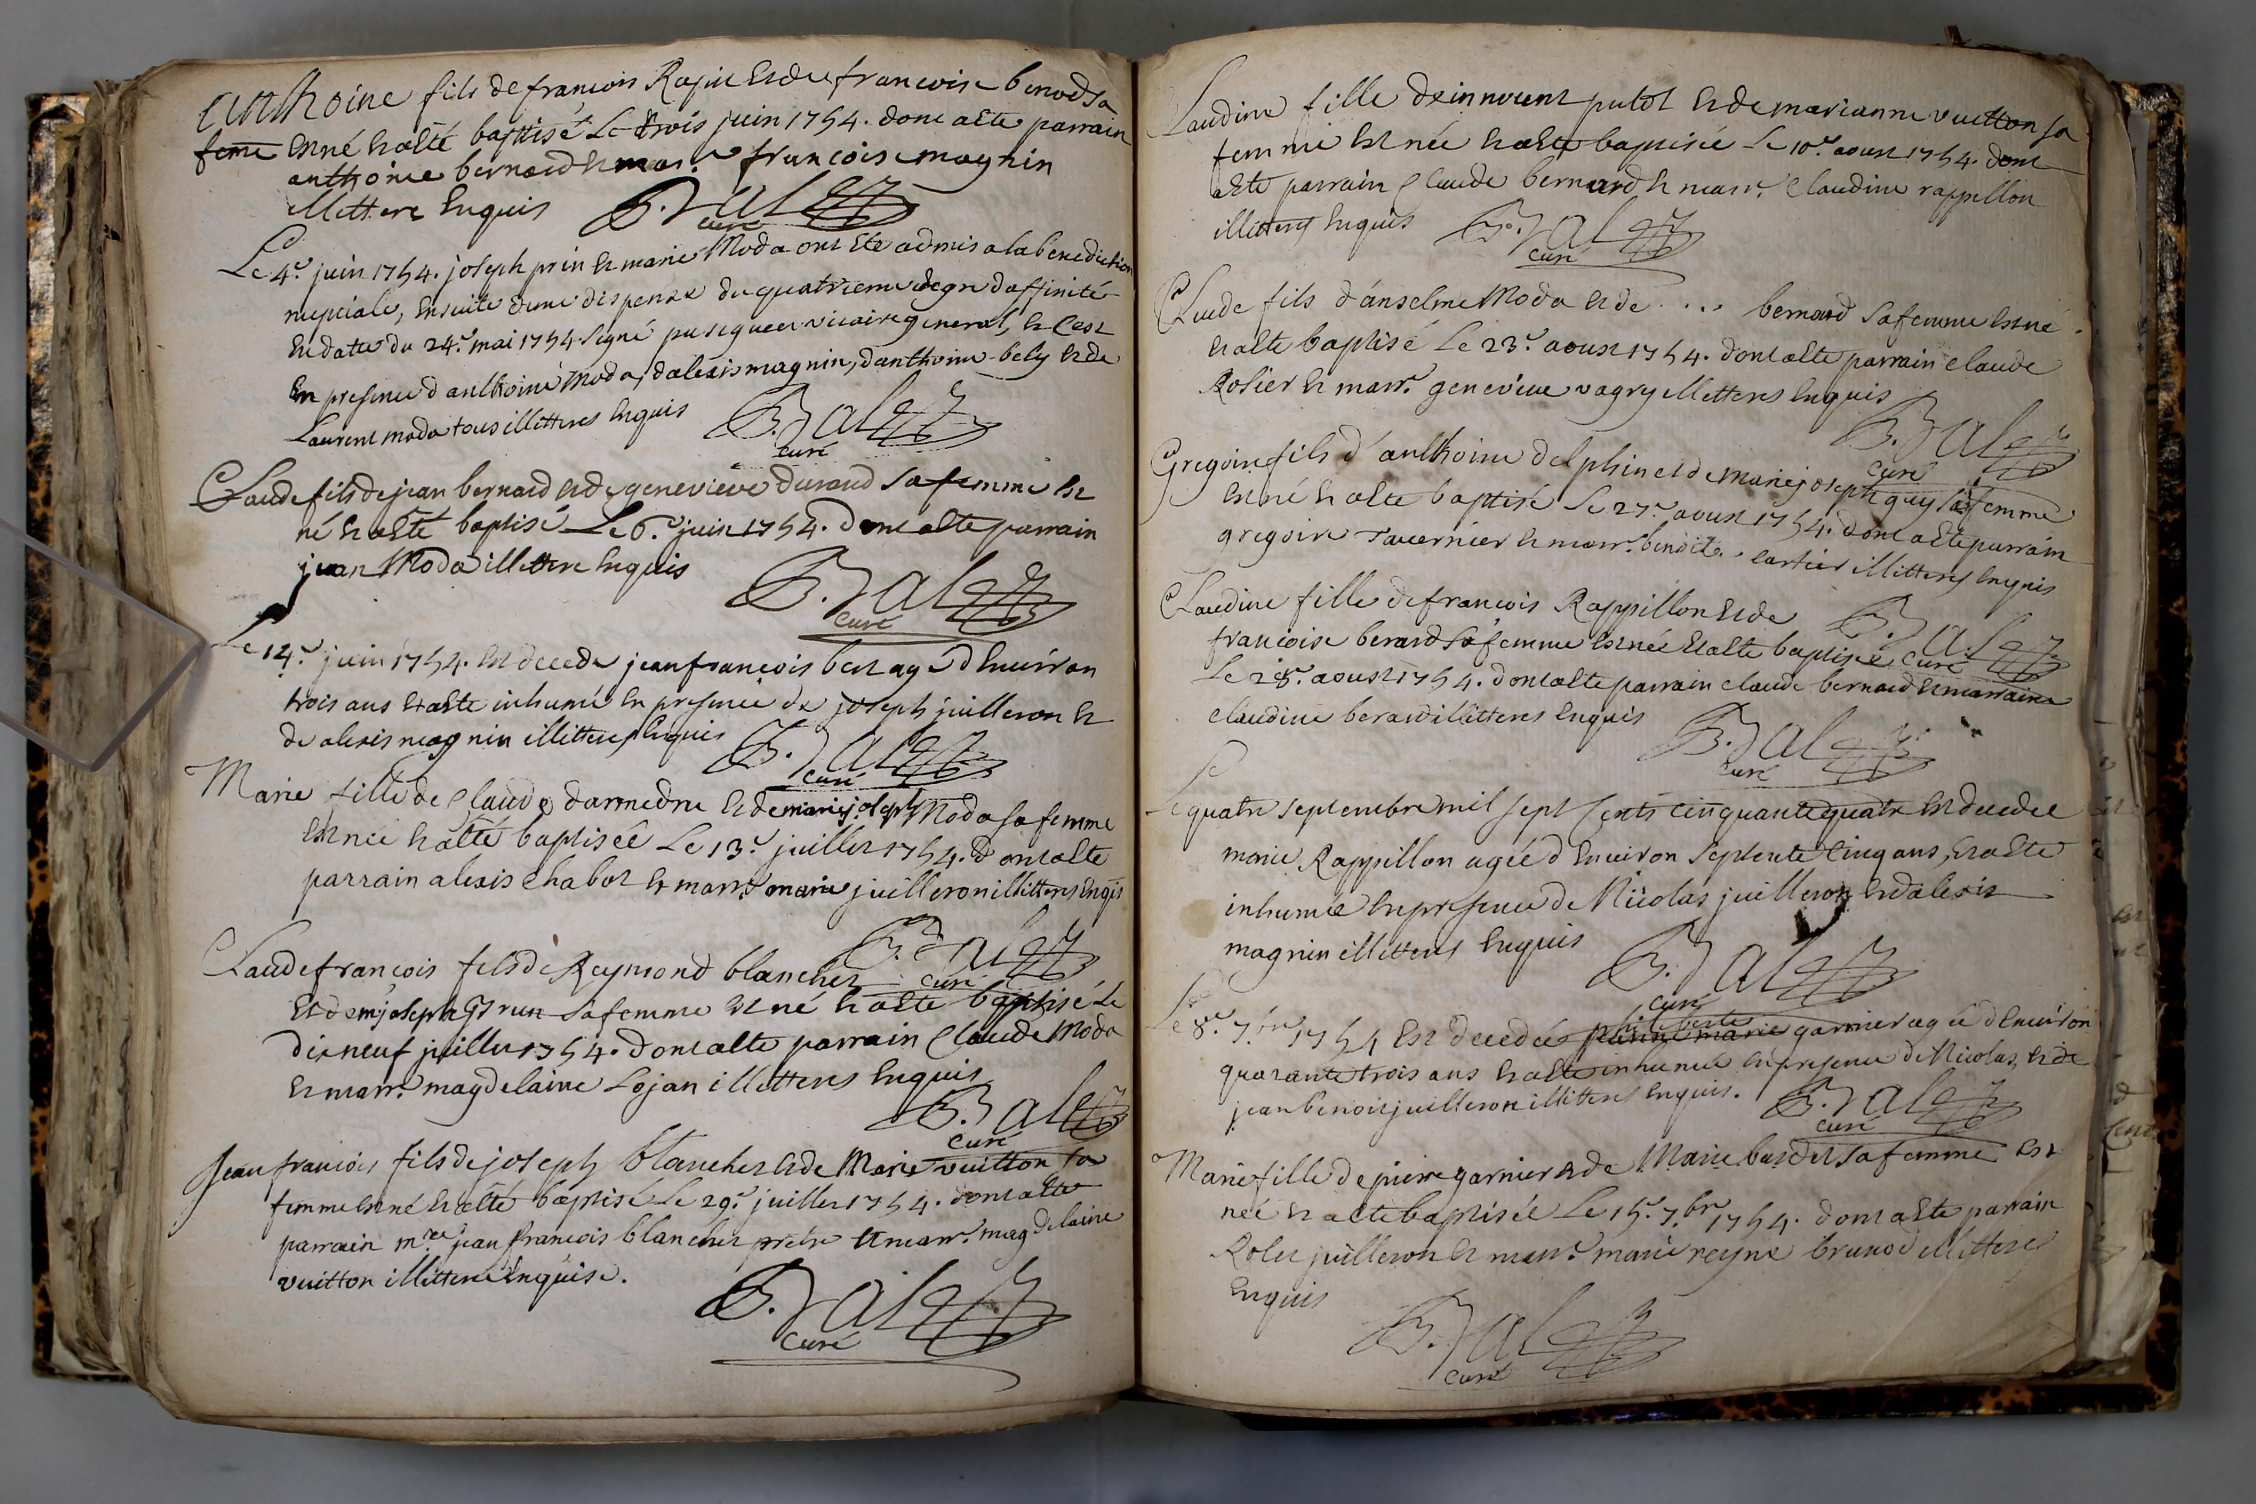 anthoine fils de francois Rapin et de francoise benod sa
feme est né et a esté baptisé Le trois juin 1754. dont a este parrain
anthoine bernard et marr.e francoise magnin
illetteres Enquis
B. Jalez
curé
Le 4.e juin 1754. joseph prin et marie Moda ont esté admis a la benediction
nuptiale, ensuite dune dispense du quatrieme degre daffinité
en datte du 24.e mai 1754 signé vicaire general, et c'est
en presence d'anthoine Moda, dalexis magnin, d'anthoine bely et de
Laurent moda tous illetteres enquis
B. Jalez
curé
Claude fils de jean bernard et de genevieve durand sa femme est
né et a esté baptisé Le 6.e juin 1754. dont a este parrain
jean Moda illettere enquis
B. Jalez
curé
Le 14.e juin 1754. est decede jean françois bert agé d'environ
trois ans et a este inhumé en presence de joseph juilleron et
de alexis magnin illetteres enquis
B. Jalez
curé
Marie fille de Claude darmedru et de marie joseph Moda sa femme
est née et a esté baptisée Le 13.e juillet 1754. dont a este
parrain alexis chabot et marr.e marie juilleron illetteres enqis
B. Jalez
curé
Claude françois fils de Reymond blanchet
et de m joseph brun sa femme est né et a este baptisé Le
dixneuf juillet 1754. dont a este parrain Claude Moda
et marr.e magdelaine Lojan illetteres enquis
B. Jalez
curé
Jean francois fils de joseph blanchet et de Marie vuitton sa
femme est né et a esté baptisé Le 29.e juillet 1754. dont a este
parrain m.re jean francois blanchet pretre et marr.e magdelaine
vuitton illettere enquise.
B. Jalez
curé
Claudine fille de innocent putot et de marianne vuitton sa
femme est née et a este baptisée Le 10.e aoust 1754. dont
a este parrain Claude bernard et marr.e Claudine rappillon
illetteres enquis
B. Jalez
curé
Claude fils d'anselme Moda et de .... bernard sa femme est né
et a este baptisé Le 23.e aoust 1754. dont a este parrain claude
Rosier et marr.e genevieve vagry illetteres enquis
B. Jalez
curé
Gregoire fils d'anthoine delphin et de marie joseph guy sa femme
est né et a este baptisé Le 27.e aoust 1754. dont a este parrain
gregoire tavernier et marr.e benoite cartier illetteres enquis
B. Jalez
curé
Claudine fille de francois Rappillon et de
francoise berard sa femme est née et a este baptisée
Le 28.e aoust 1754. dont a este parrain claude bernard et marraine
claudine berard illetteres enquis
B. Jalez
curé
Le quatre septembre mil sept cents cinquante quatre est decedee
marie Rappillon agée d'environ septente cinq ans, et a este
inhumée en presence de Nicolas juilleron et d'alexis
magnin illetteres enquis
B. Jalez
curé
Le 8.e 7.bre 1754 est decedée philiberte garnier agée d'environ
quarante trois ans et a este inhumée en presence de Nicolas, et de
jean benoit juilleron illetteres enquis.
B. Jalez
curé
Marie fille de pierre garnier et de Marie bardet sa femme est
née et a este baptisée Le 15.e 7.bre 1754. dont a este parrain
Rolet juilleron et marr.e marie reyne brunod illetteres
enquis
B. Jalez
curé